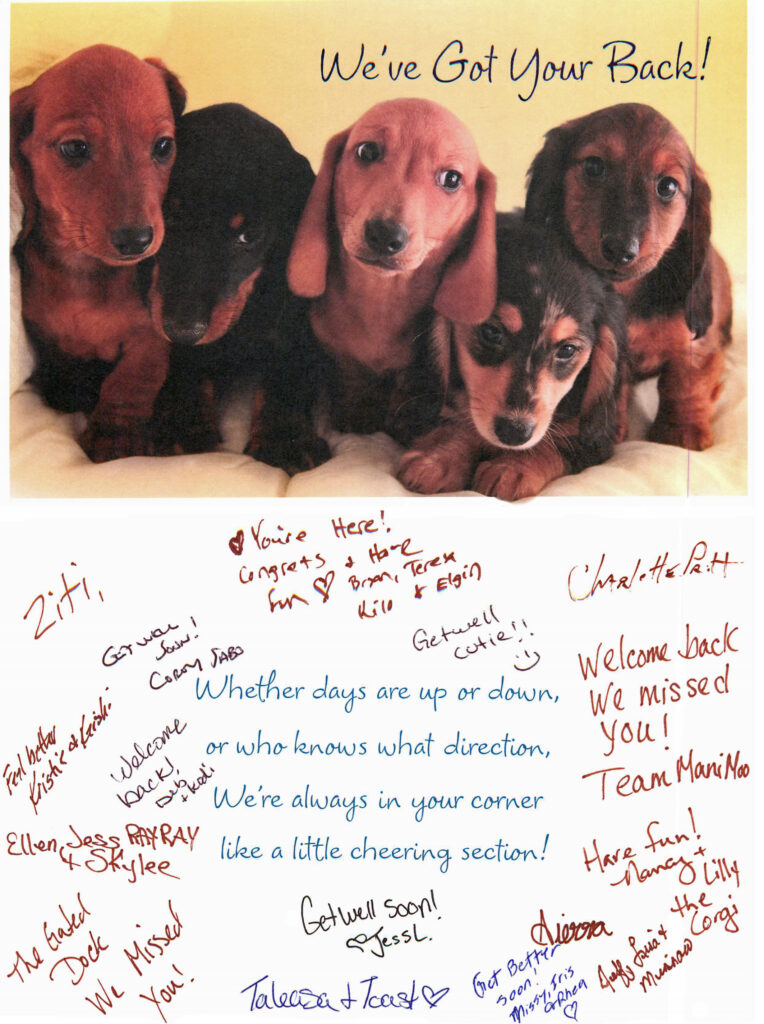 We've Got Your Back!
Ziti,
♥ You're Here!
Congrats & Have
fun ♡ Bryan, Teresa
Kilo & Elgin
Charlotte Pratt
Get well
Soon!
Corory Sabo
Get well
cutie!!
Welcome back
We missed
you!
Team ManiMoo
Feel better
Kristie & Keishi
Welcome
back!
Deb,
+ Kodi
Whether days are up or down,
or who knows what direction,
We're always in your corner
like a little cheering section!
Ellen, Jess RAYRAY
& Skylee
Have fun!
Nancy +
Lilly
the
Corgi
The Gated
Dock
We Missed
You!
Get well soon!
♡ Jess L.
Sierra
Get Better
soon!
Missy, Iris
&Rhea
♡
Taleasa & Toast ♡